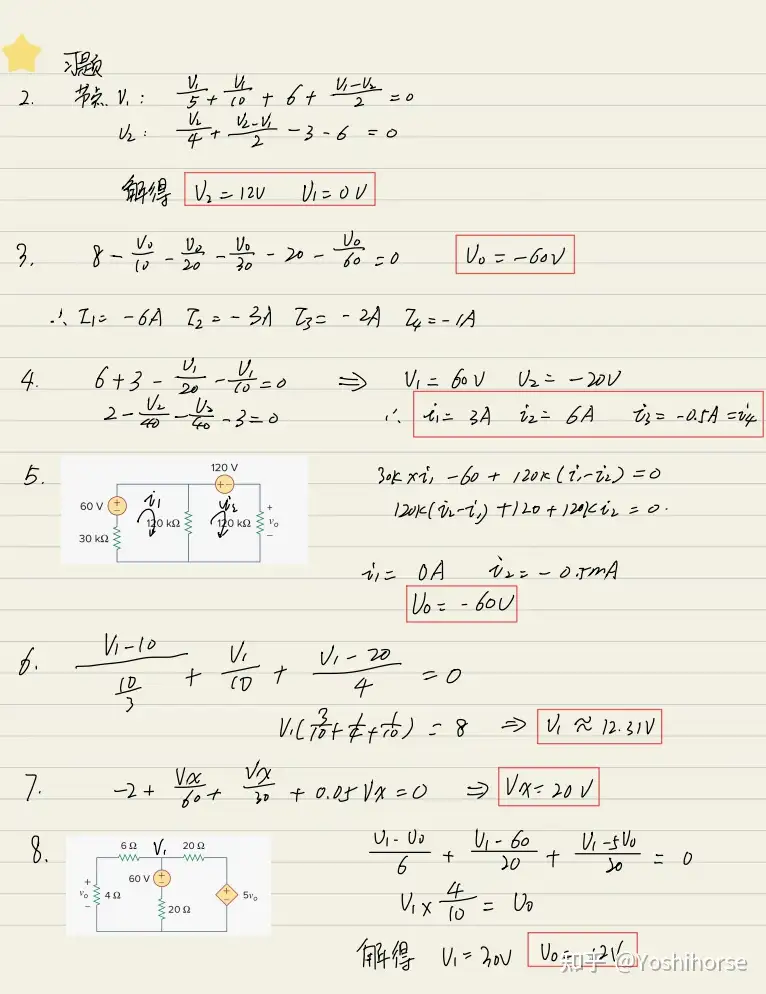 习题
2. 节点 V₁: V₁/5 + V₁/10 + 6 + (V₁-V₂)/2 = 0
V₂: V₂/4 + (V₂-V₁)/2 - 3 - 6 = 0
解得 V₂ = 12V V₁ = 0V
3. 8 - V₀/10 - V₀/20 - V₀/30 - 20 - V₀/60 = 0 V₀ = -60V
∴ I₁ = -6A I₂ = -3A I₃ = -2A I₄ = -1A
4. 6 + 3 - V₁/20 - V₁/10 = 0 ⇒ V₁ = 60V V₂ = -20V
2 - V₂/40 - V₂/40 - 3 = 0 ∴ i₁ = 3A i₂ = 6A i₃ = -0.5A = i₄
5. 120 V
60 V
30 kΩ
i₁
120 kΩ
i₂
120 kΩ
+
v₀
-
30k×i₁ - 60 + 120k(i₁-i₂) = 0
120k(i₂-i₁) + 120 + 120k i₂ = 0.
i₁ = 0A i₂ = -0.5mA
V₀ = -60V
6. (V₁-10)/(10/3) + V₁/10 + (V₁-20)/4 = 0
V₁(3/10 + 1/4 + 1/10) = 8 ⇒ V₁ ≈ 12.31V
7. -2 + Vx/60 + Vx/30 + 0.05Vx = 0 ⇒ Vx = 20V
8. 6 Ω V₁ 20 Ω
+
v₀
-
4 Ω
60 V
20 Ω
5v₀
(V₁-V₀)/6 + (V₁-60)/20 + (V₁-5V₀)/20 = 0
V₁ × 4/10 = V₀
解得 V₁ = 30V V₀ = 12V
知乎 @Yoshihorse